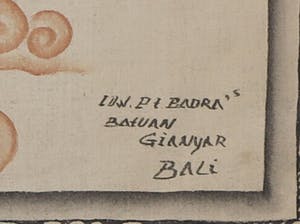 I W. Pt BADRA'S
BATUAN
GIANYAR
BALi